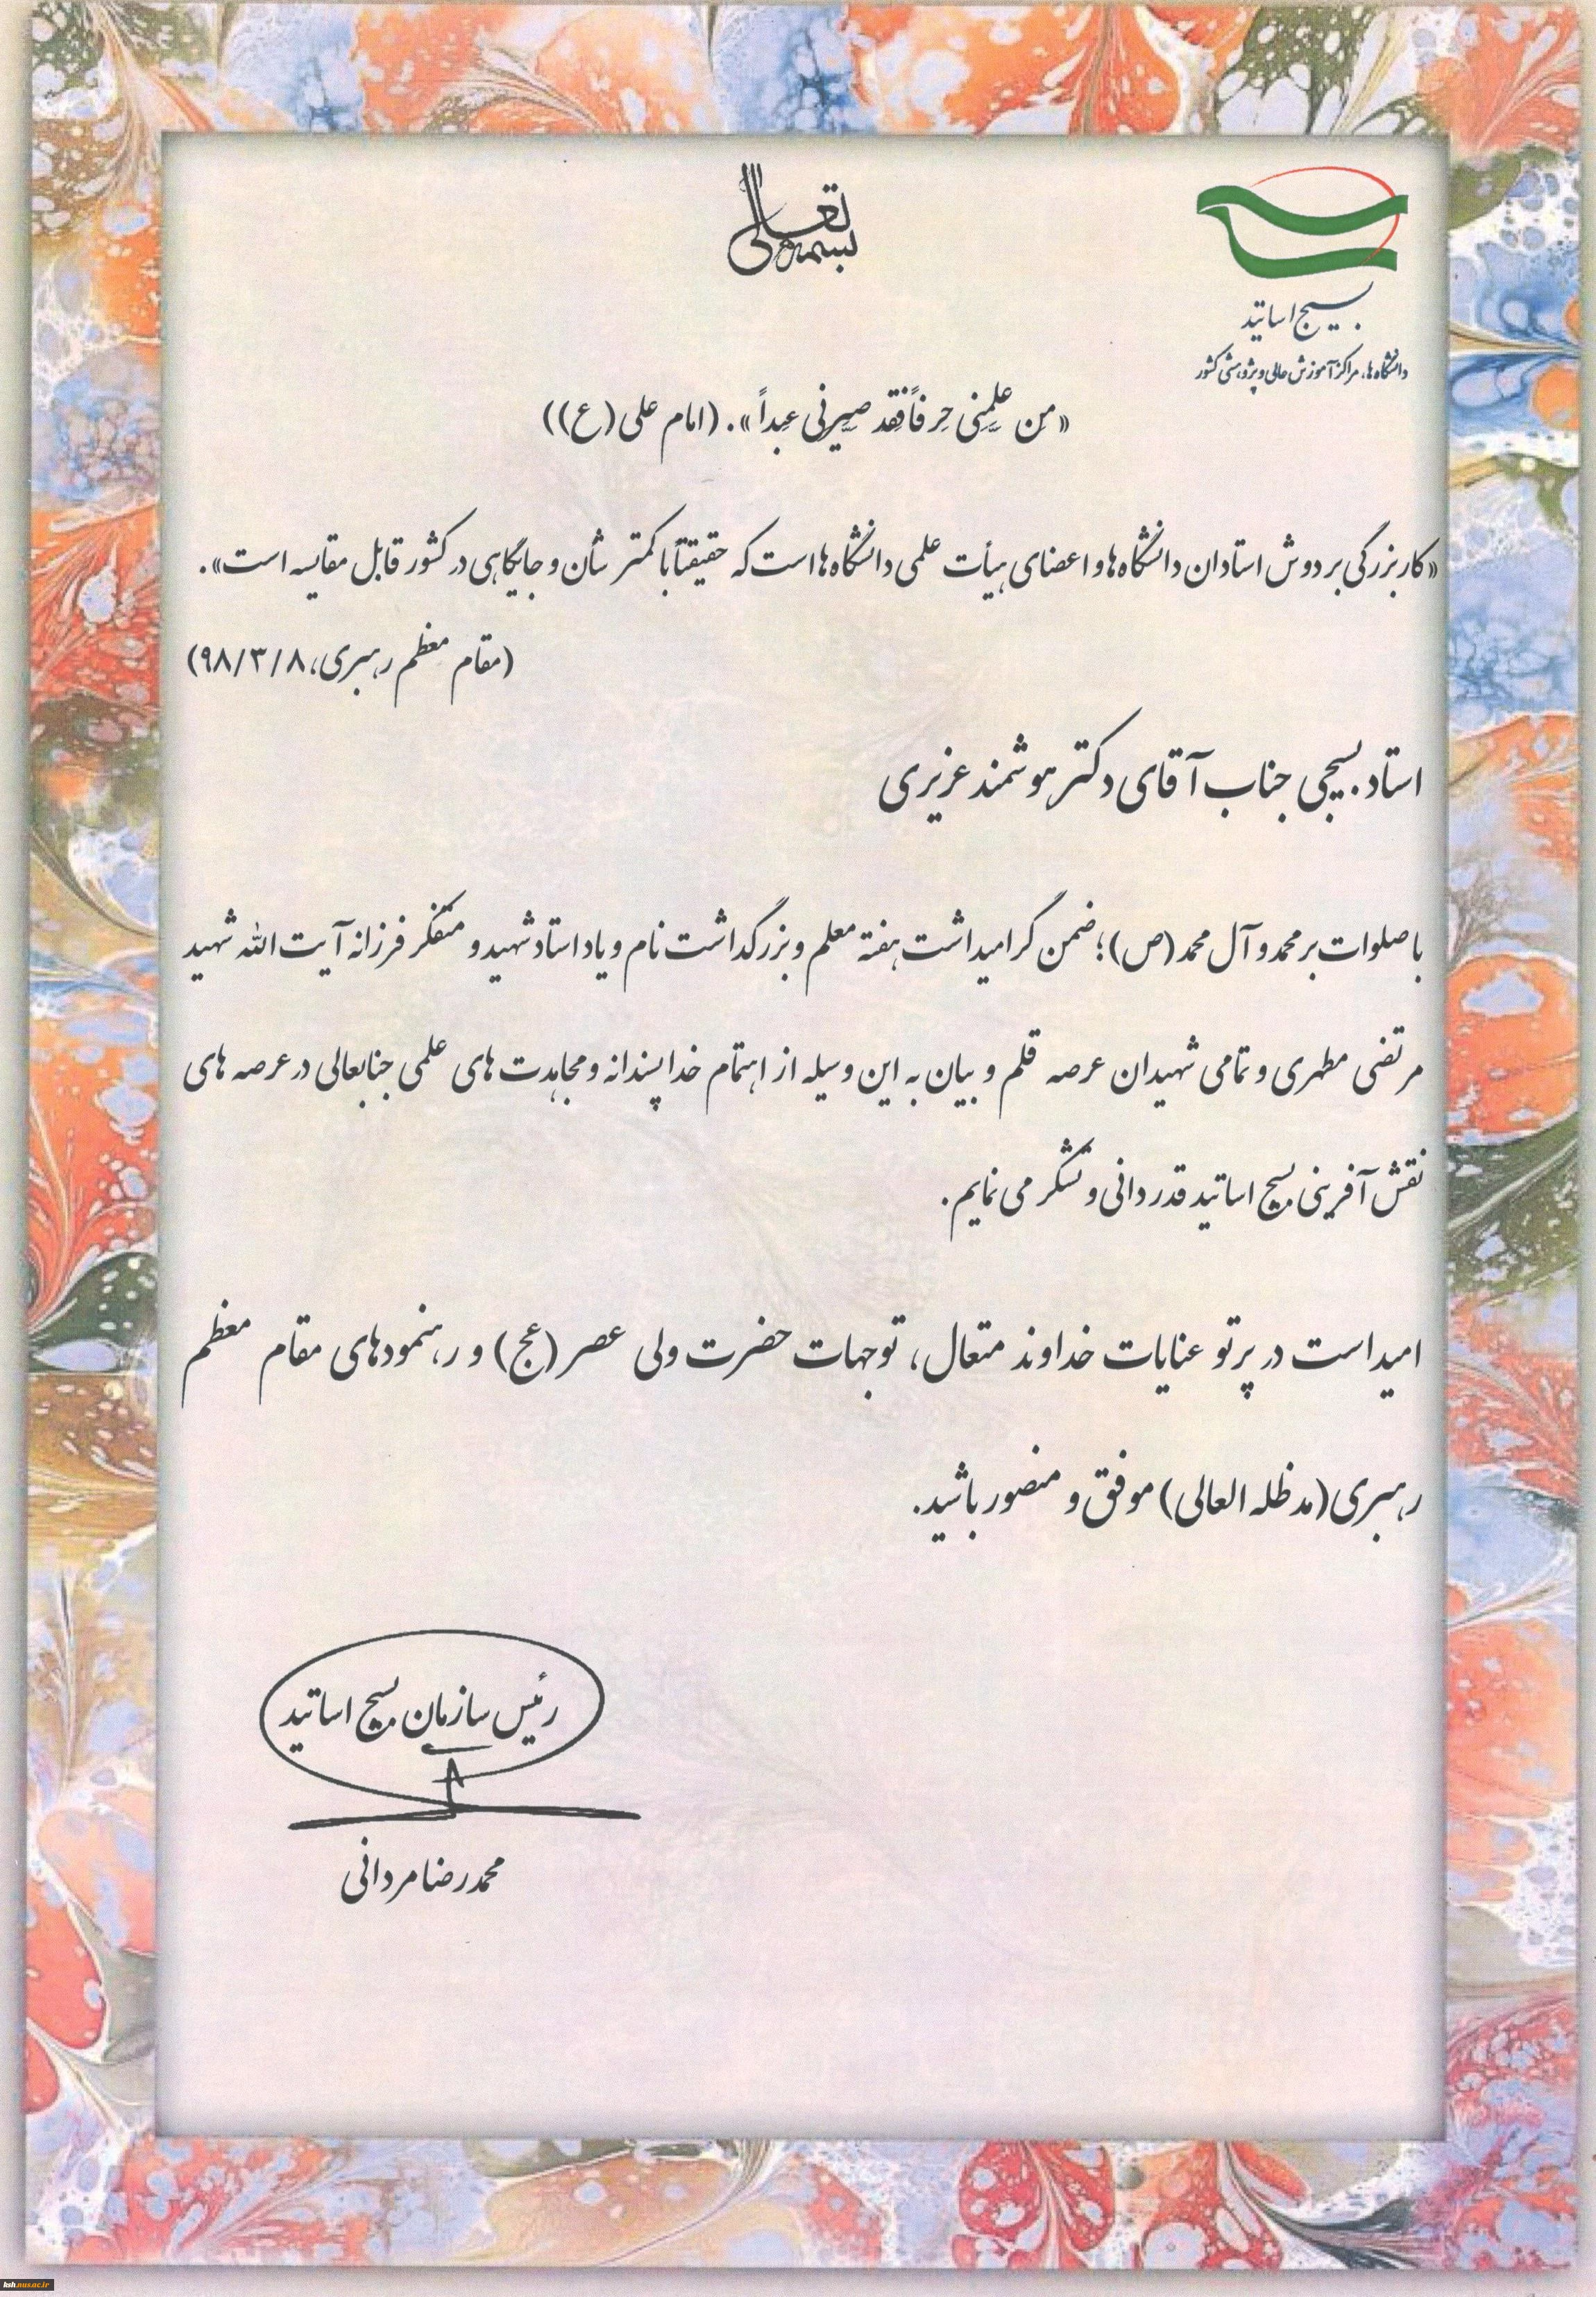 بسمه تعالی
بسیج اساتید
دانشگاه ها، مراکز آموزش عالی و پژوهشی کشور
«مَن عَلَّمَنی حَرفاً فَقَد صَیَّرَنی عَبداً». (امام علی (ع))
«کار بزرگی بر دوش استادان دانشگاه ها و اعضای هیأت علمی دانشگاه ها است که حقیقتاً با کمتر شأن و جایگاهی در کشور قابل مقایسه است».
(مقام معظم رهبری، ۹۸/۳/۸)
استاد بسیجی جناب آقای دکتر هوشمند عزیزی
با صلوات بر محمد و آل محمد (ص)؛ ضمن گرامیداشت هفته معلم و بزرگداشت نام و یاد استاد شهید و متفکر فرزانه آیت الله شهید
مرتضی مطهری و تمامی شهیدان عرصه قلم و بیان به این وسیله از اهتمام خداپسندانه و مجاهدت های علمی جنابعالی در عرصه های
نقش آفرینی بسیج اساتید قدردانی و تشکر می نمایم.
امید است در پرتو عنایات خداوند متعال، توجهات حضرت ولی عصر (عج) و رهنمودهای مقام معظم
رهبری (مد ظله العالی) موفق و منصور باشید.
رئیس سازمان بسیج اساتید
محمدرضا مردانی
hsh.nus.ac.ir